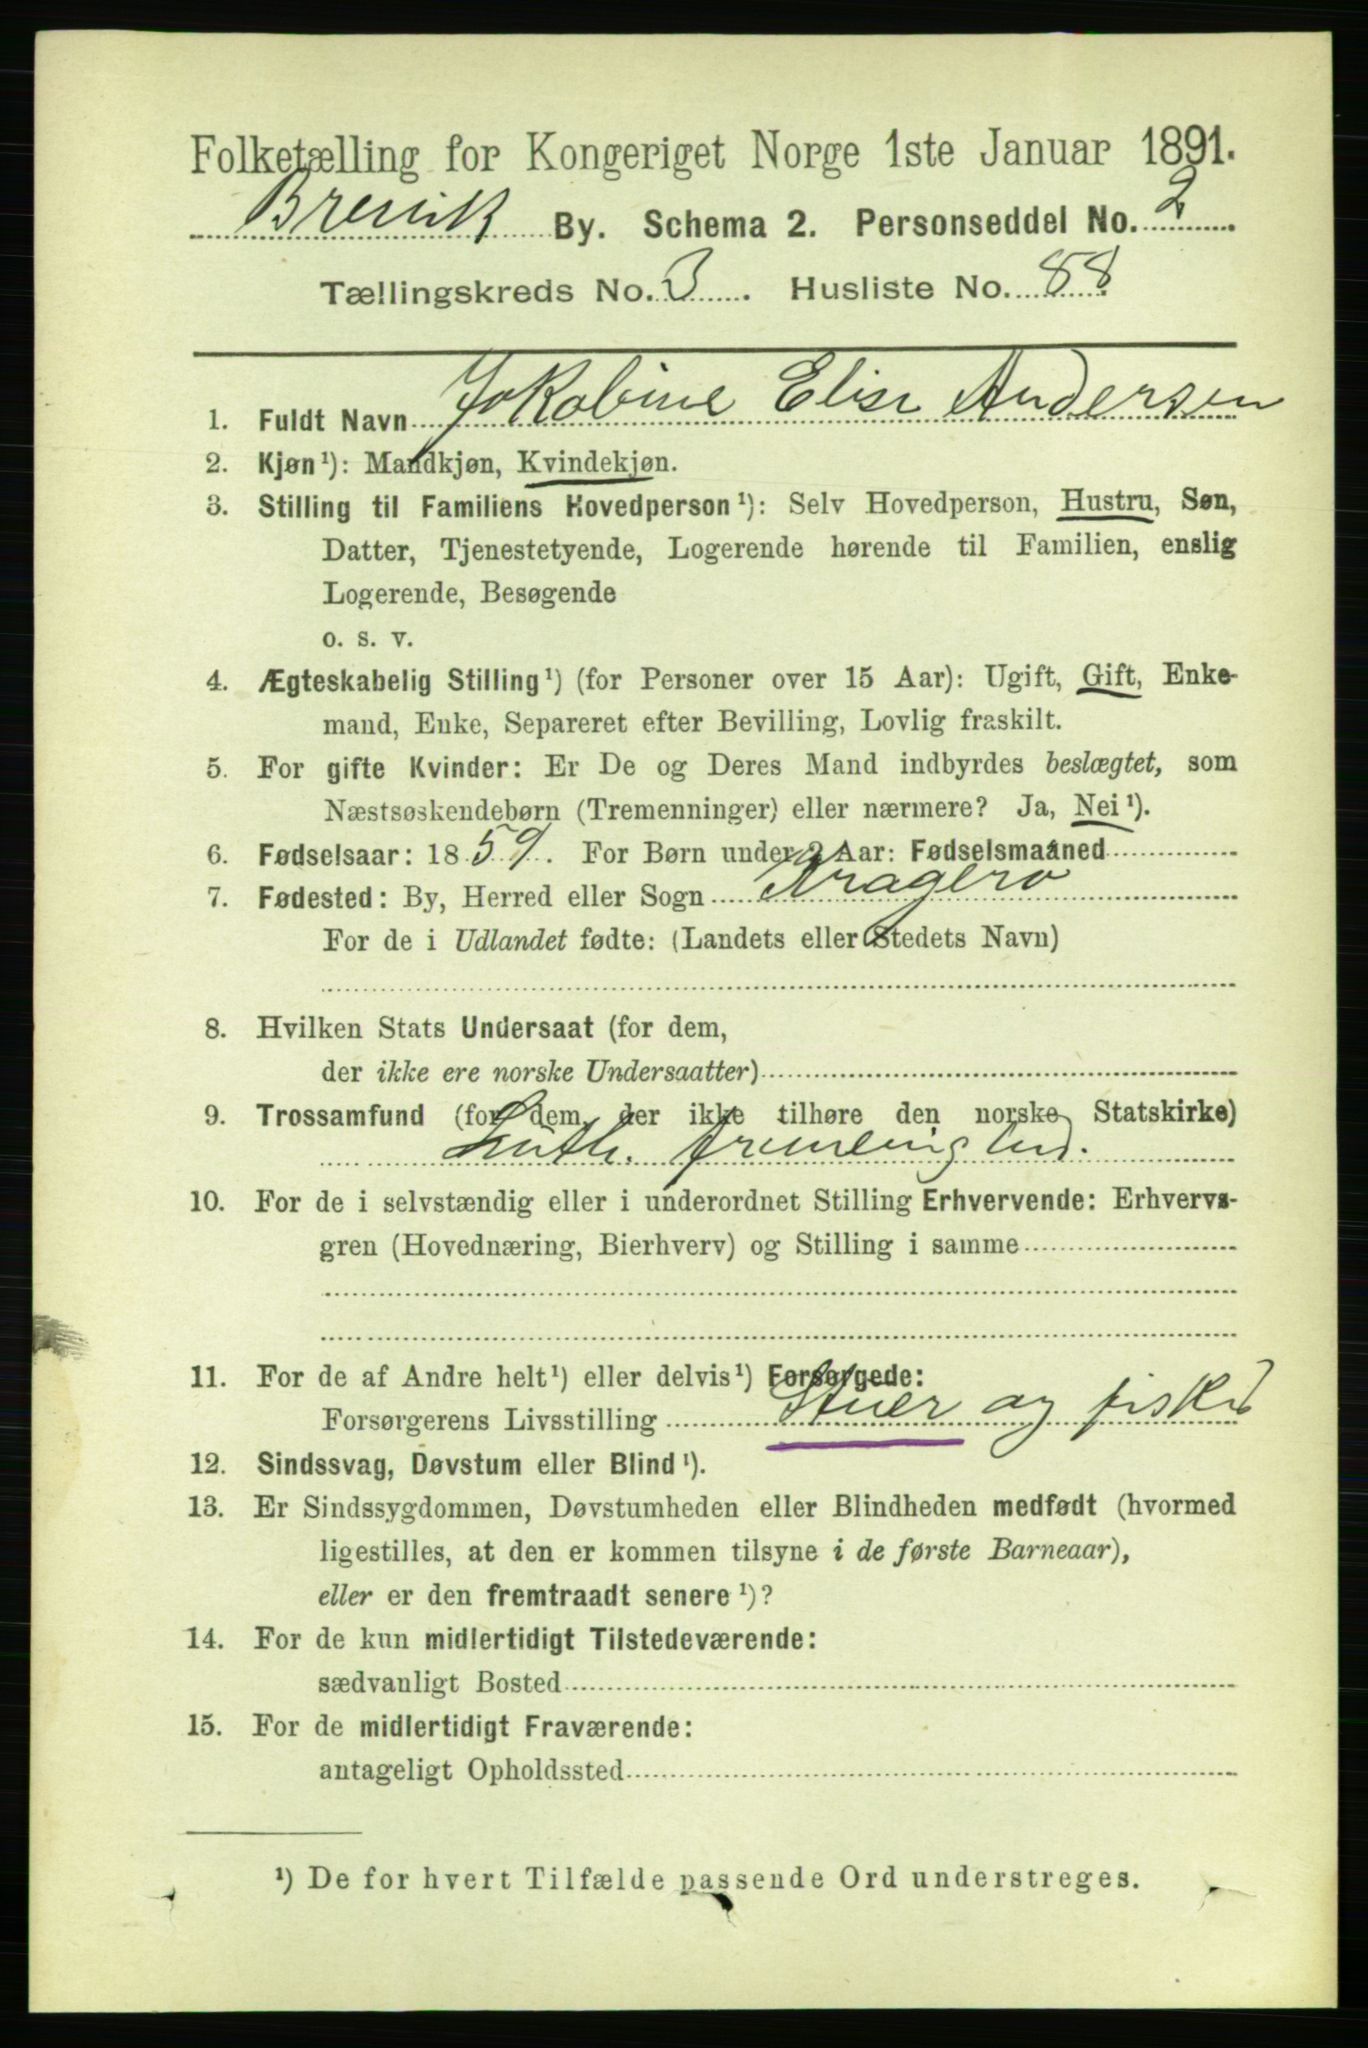 Folketælling for Kongeriget Norge 1ste Januar 1891.
Brevik By. Schema 2. Personseddel No. 2
Tællingskreds No. 3. Husliste No. 88
1. Fuldt Navn Jakobine Elise Andersen
2. Kjøn¹): Mandkjøn, Kvindekjøn.
3. Stilling til Familiens Hovedperson¹): Selv Hovedperson, Hustru, Søn,
Datter, Tjenestetyende, Logerende hørende til Familien, enslig
Logerende, Besøgende
o. s. v.
4. Ægteskabelig Stilling¹) (for Personer over 15 Aar): Ugift, Gift, Enke-
mand, Enke, Separeret efter Bevilling, Lovlig fraskilt.
5. For gifte Kvinder: Er De og Deres Mand indbyrdes beslægtet, som
Næstsøskendebørn (Tremenninger) eller nærmere? Ja, Nei¹).
6. Fødselsaar: 1859. For Børn under 2 Aar: Fødselsmaaned
7. Fødested: By, Herred eller Sogn Kragerø
For de i Udlandet fødte: (Landets eller Stedets Navn)
8. Hvilken Stats Undersaat (for dem,
der ikke ere norske Undersaatter)
9. Trossamfund (for dem, der ikke tilhøre den norske Statskirke)
Luth.
10. For de i selvstændig eller i underordnet Stilling Erhvervende: Erhvervs-
gren (Hovednæring, Bierhverv) og Stilling i samme
11. For de af Andre helt¹) eller delvis¹) Forsørgede:
Forsørgerens Livsstilling Stuer og fisker
12. Sindssvag, Døvstum eller Blind¹).
13. Er Sindssygdommen, Døvstumheden eller Blindheden medfødt (hvormed
ligestilles, at den er kommen tilsyne i de første Barneaar),
eller er den fremtraadt senere¹)?
14. For de kun midlertidigt Tilstedeværende:
sædvanligt Bosted
15. For de midlertidigt Fraværende:
antageligt Opholdssted
¹) De for hvert Tilfælde passende Ord understreges.